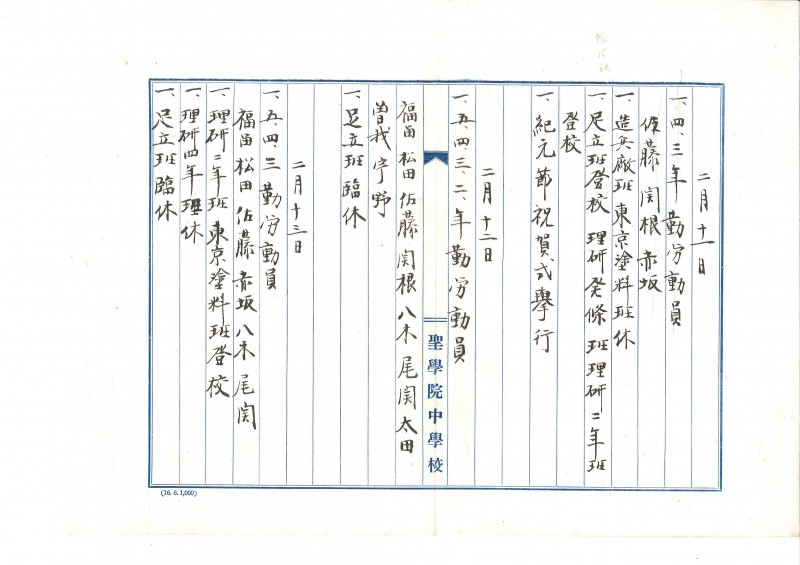 二月十一日
一、四、三年勤労動員
佐藤 関根 赤坂
一、造兵廠班 東京塗料班休
一、足立班登校 理研発條班理研二年班
登校
一、紀元節祝賀式擧行
二月十二日
一、五、四、三、二、年勤労動員
聖學院中學校
福田 松田 佐藤 関根 八木 尾関 太田
曽我 宇野
一、足立班臨休
二月十三日
一、五、四、三勤労動員
福田 松田 佐藤 赤坂 八木 尾関
一、理研二年班 東京塗料班登校
一、理研四年班休
一、足立班臨休
(16. 6. 1,000)